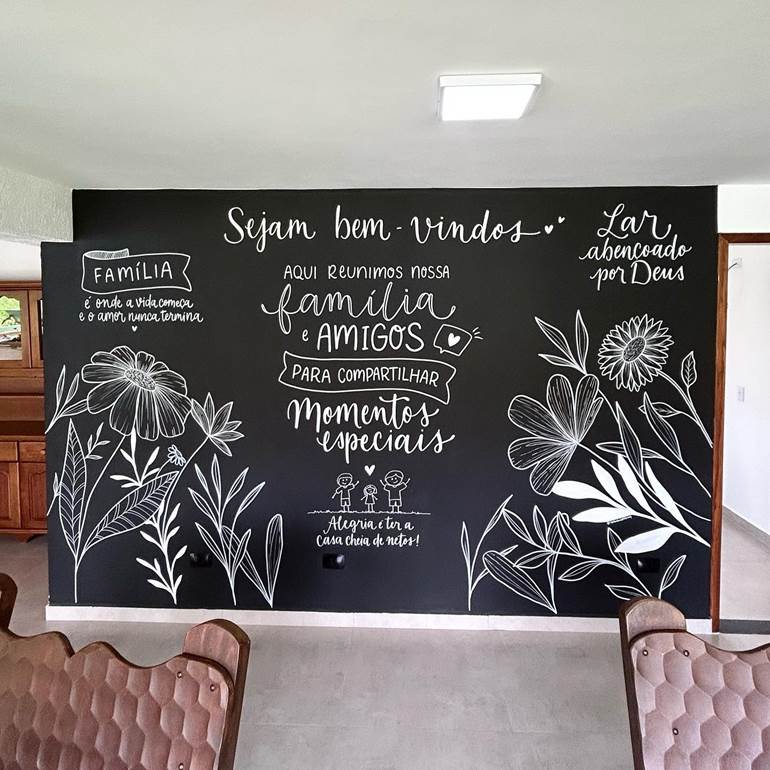 Sejam bem-vindos
FAMÍLIA
é onde a vida começa
e o amor nunca termina
AQUI REUNIMOS NOSSA
família
e AMIGOS
PARA COMPARTILHAR
Momentos
especiais
Alegria é ter a
casa cheia de netos!
Lar
abençoado
por Deus